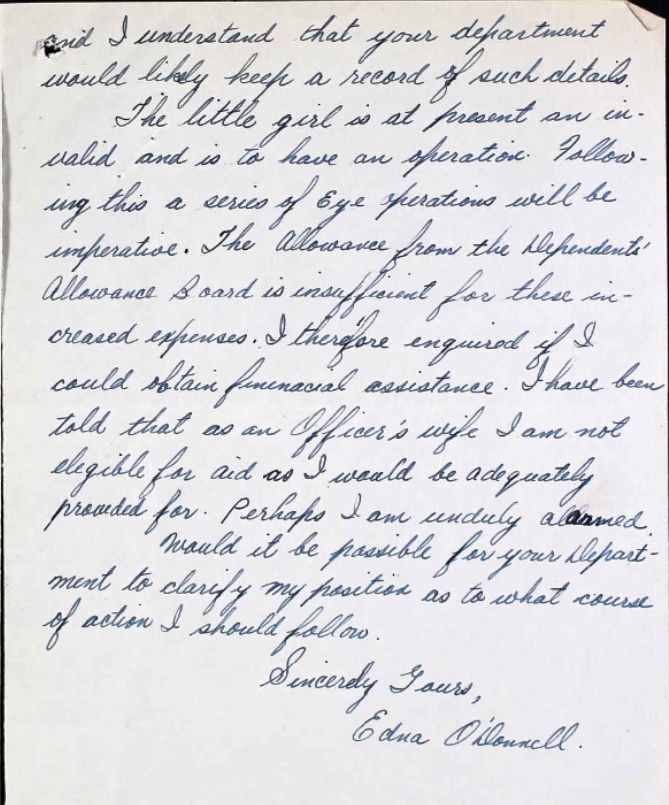 and I understand that your department
would likely keep a record of such details.
The little girl is at present an in-
valid and is to have an operation. Follow-
ing this a series of Eye operations will be
imperative. The Allowance from the Dependents'
Allowance Board is insufficient for these in-
creased expenses. I therefore enquired if I
could obtain fininacial assistance. I have been
told that as an Officer's wife I am not
elegible for aid as I would be adequately
provided for. Perhaps I am unduly alarmed.
Would it be possible for your Depart-
ment to clarify my position as to what course
of action I should follow.
Sincerely Yours,
Edna O'Donnell.